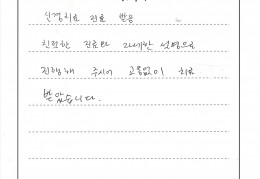 신경치료 진료 받음
친절한 진료와 자세한 설명으로
진행해 주시어 고통없이 치료
받았습니다.